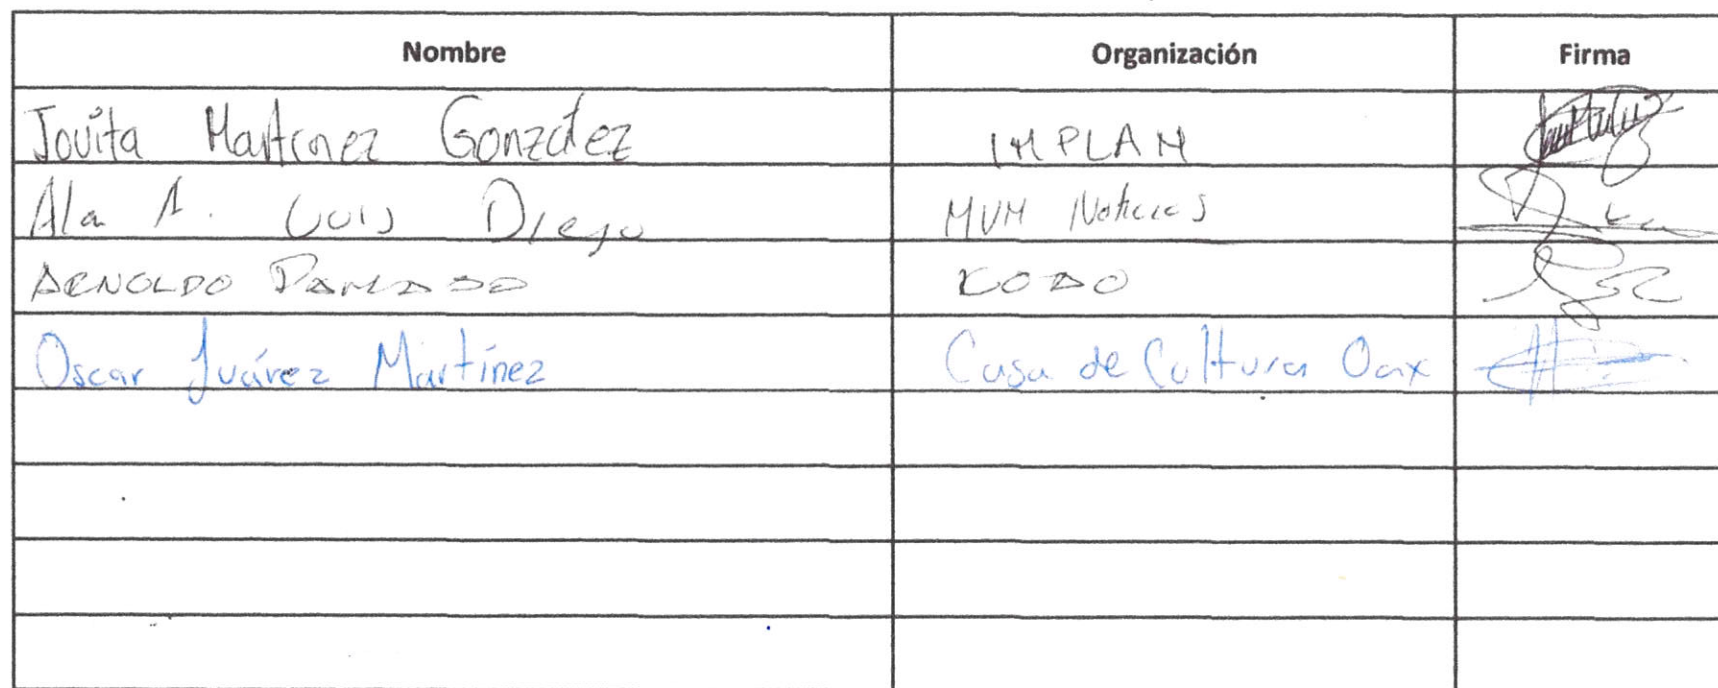 Nombre Organización Firma
Jovita Martínez González IMPLAN
Ala A. Luis Diego MVM Noticias
ARNOLDO DAMASO KODO
Oscar Juárez Martínez Casa de Cultura Oax